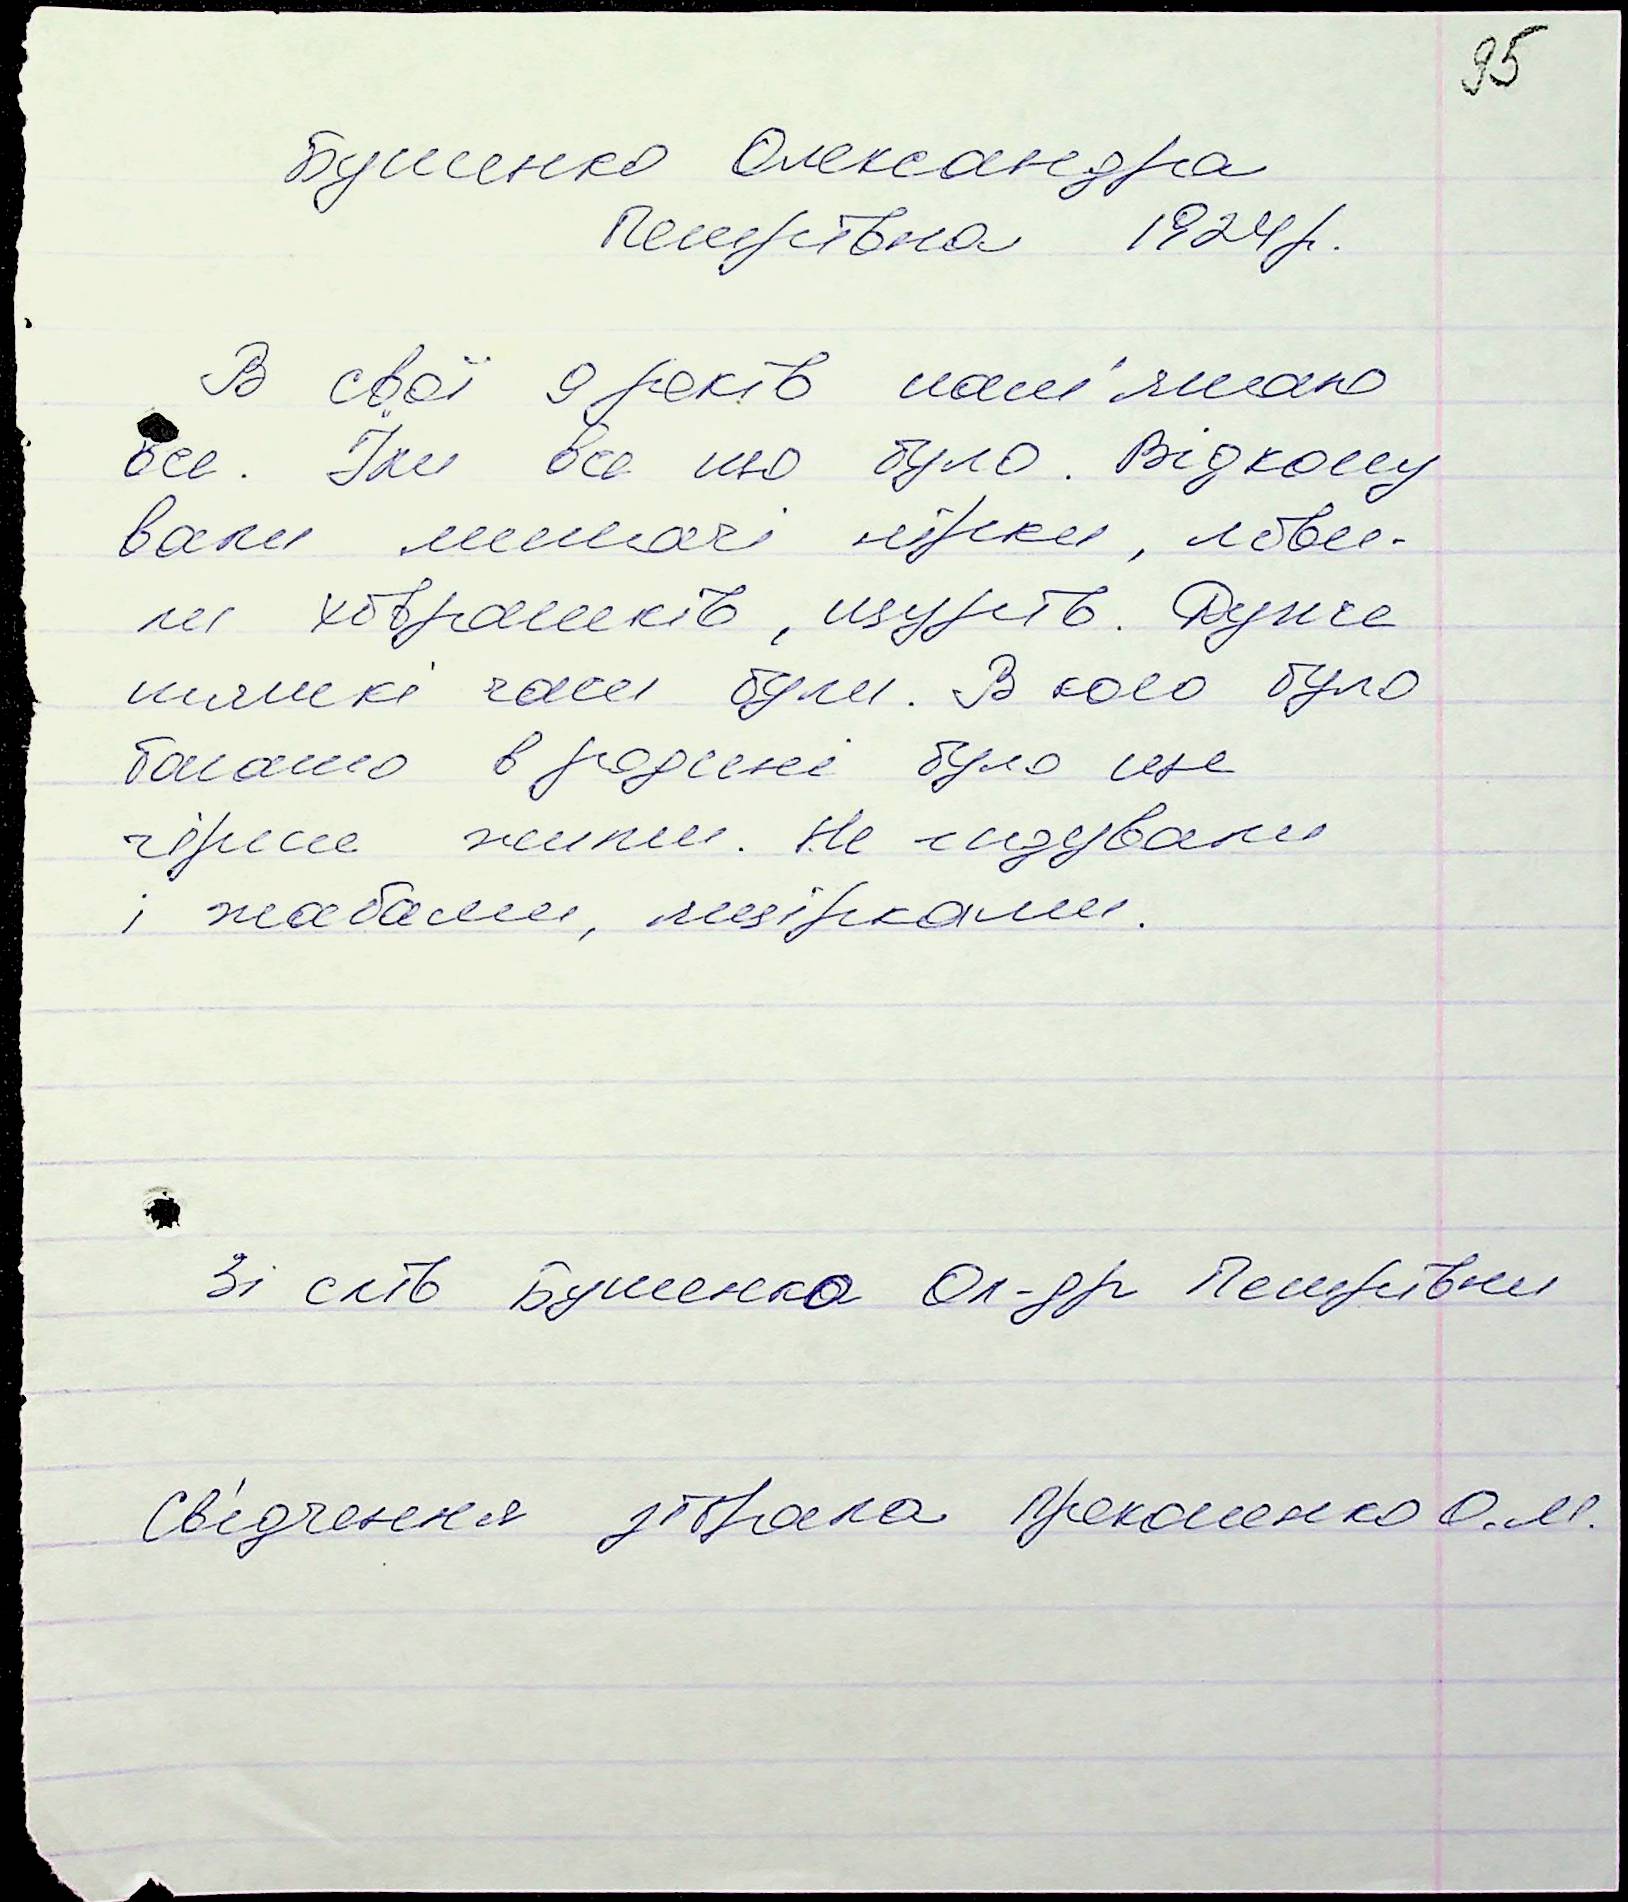 95
Бушенко Олександра
Петрівна 1924р.
В свої 9 років пам'ятаю
все. Їли все що було. Відкопу
вали мишачі нірки, лови-
ли ховрашків, щурів. Дуже
тяжкі часи були. В кого було
багато в родині було ще
гірше жити. Не гидували
і жабами, ящірками.
Зі слів Бушенко Ол-др Петрівни
Свідчення зібрала О.М.